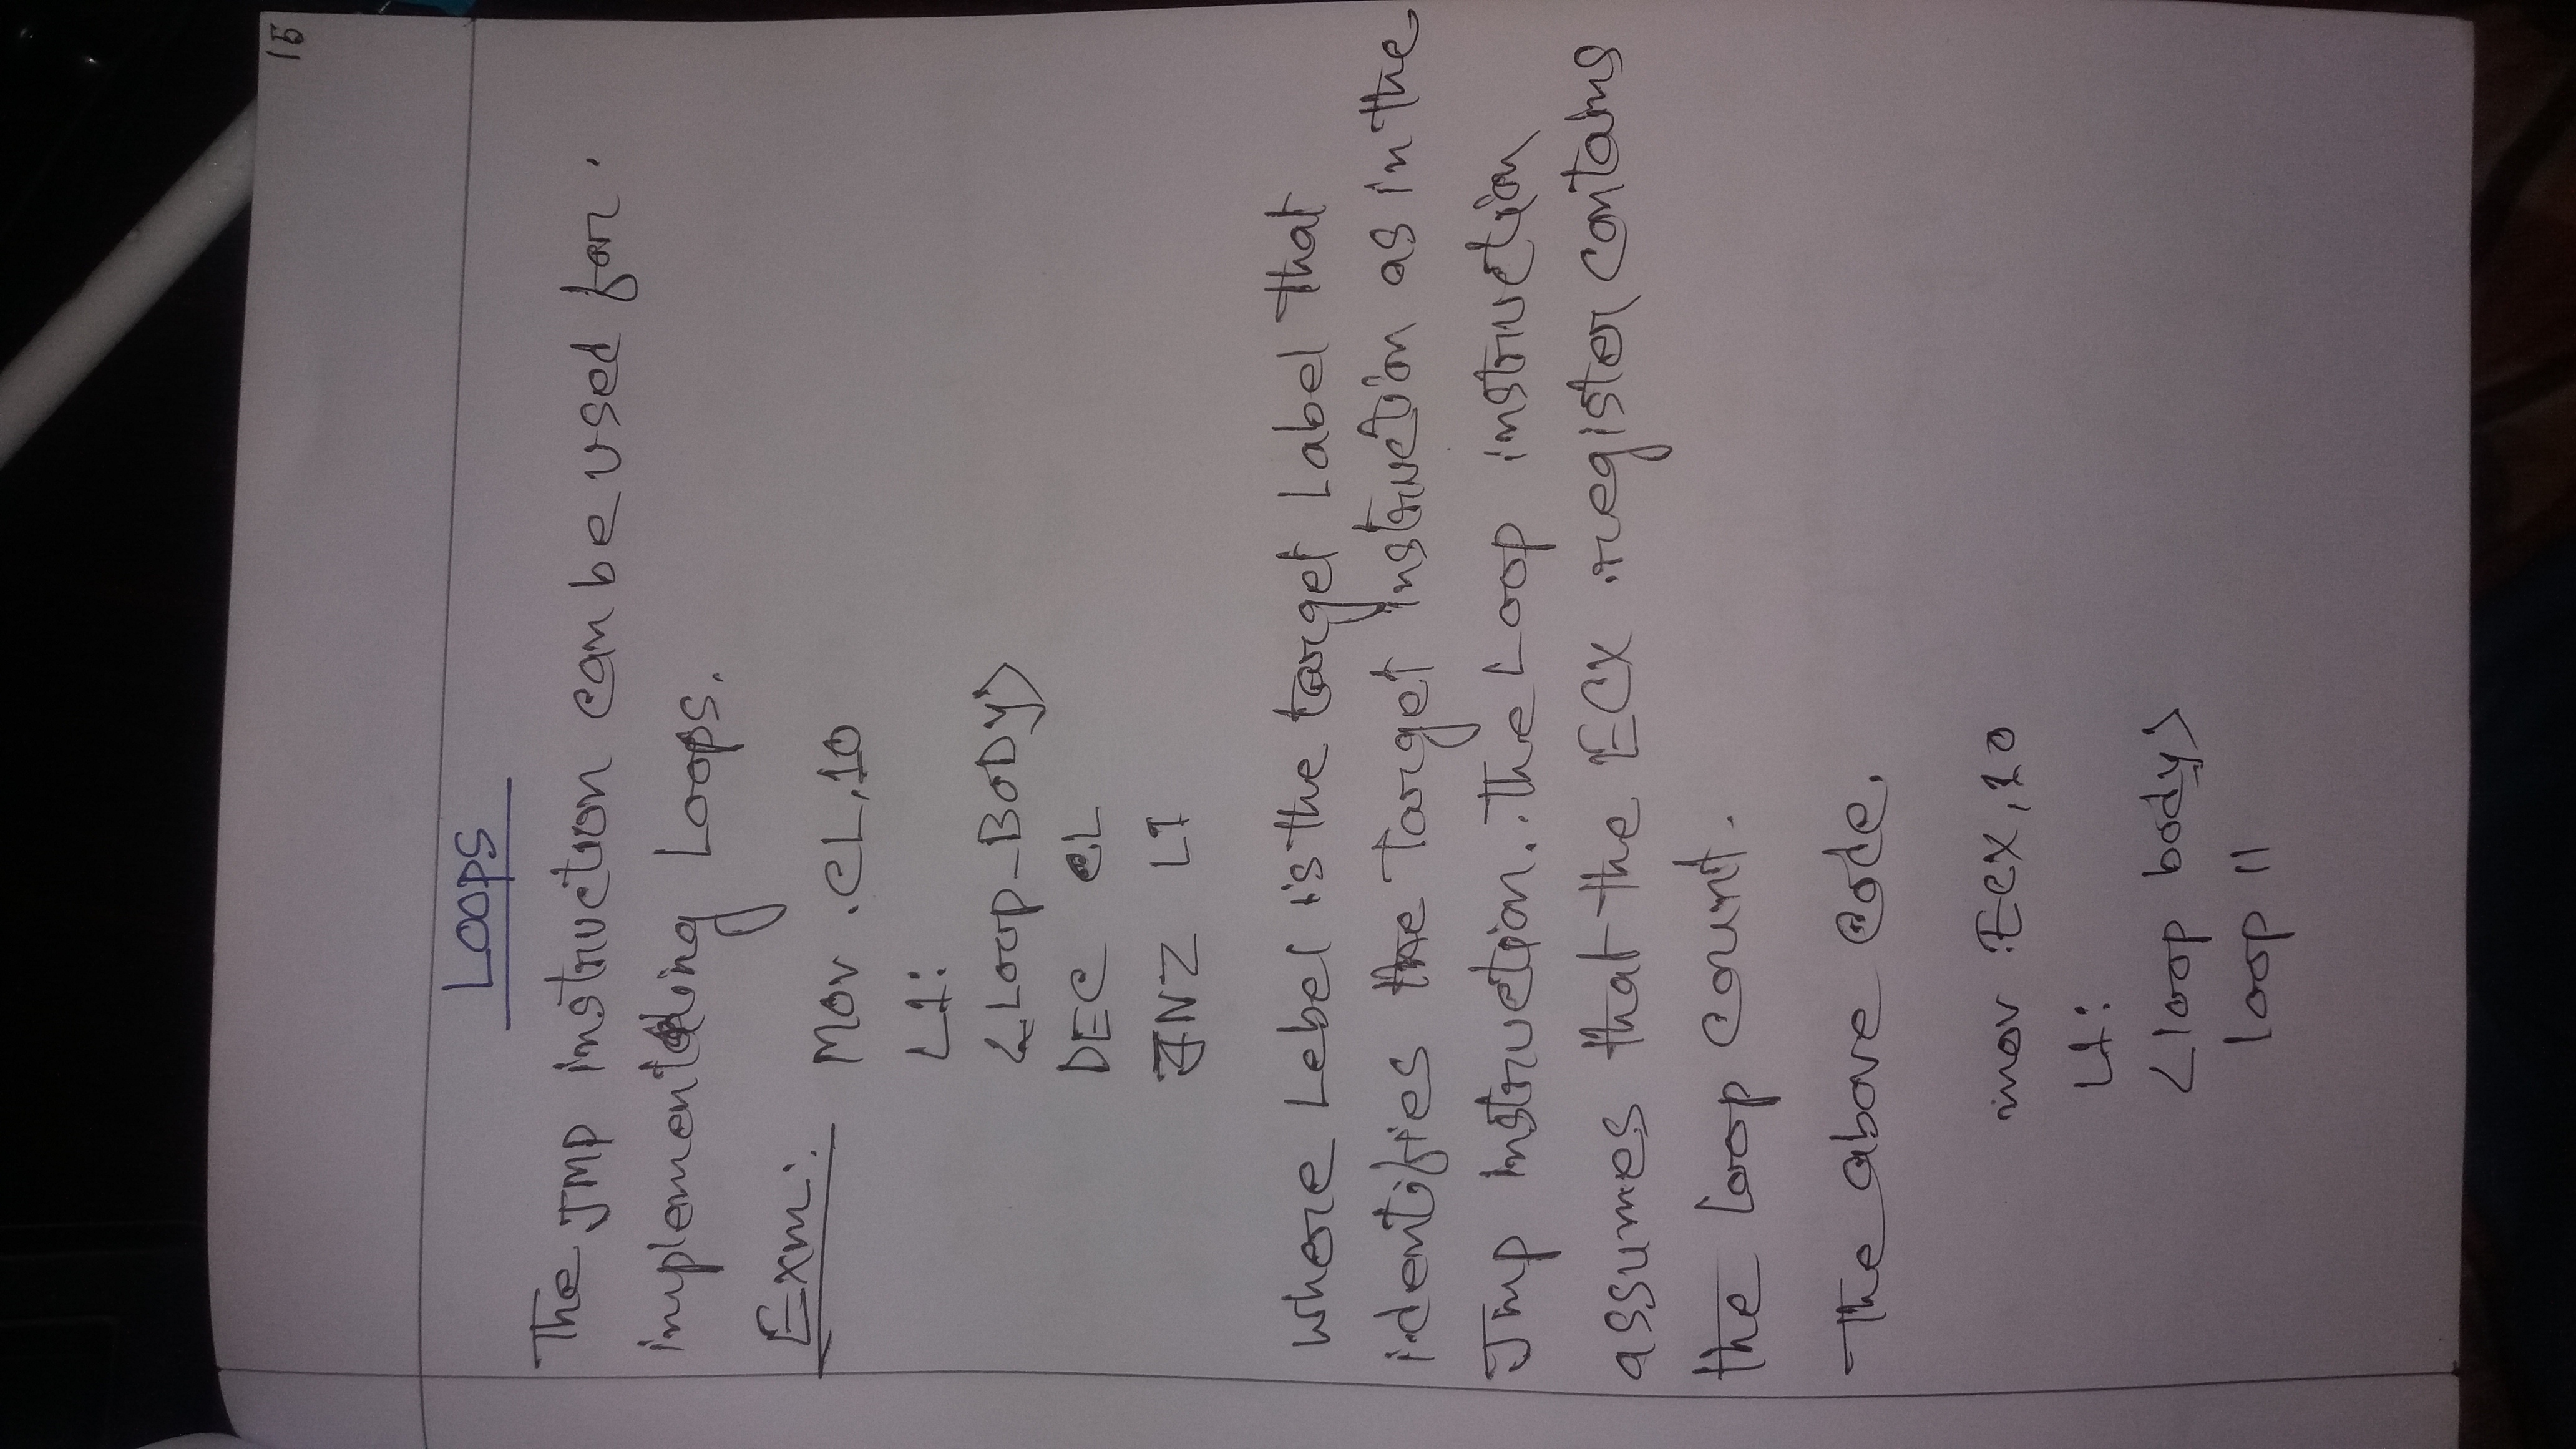 15
Loops
The JMP instruction can be used for
implementing Loops.
Exm:
Mov CL,10
L1:
<Loop_BODY>
DEC CL
JNZ L1
where Lebel is the target Label that
identifies the Target instruction as in the
Jmp instruction. The Loop instruction
assumes that the ECX register contains
the loop count.
The above code.
mov ECX,10
L1:
<loop body>
loop l1